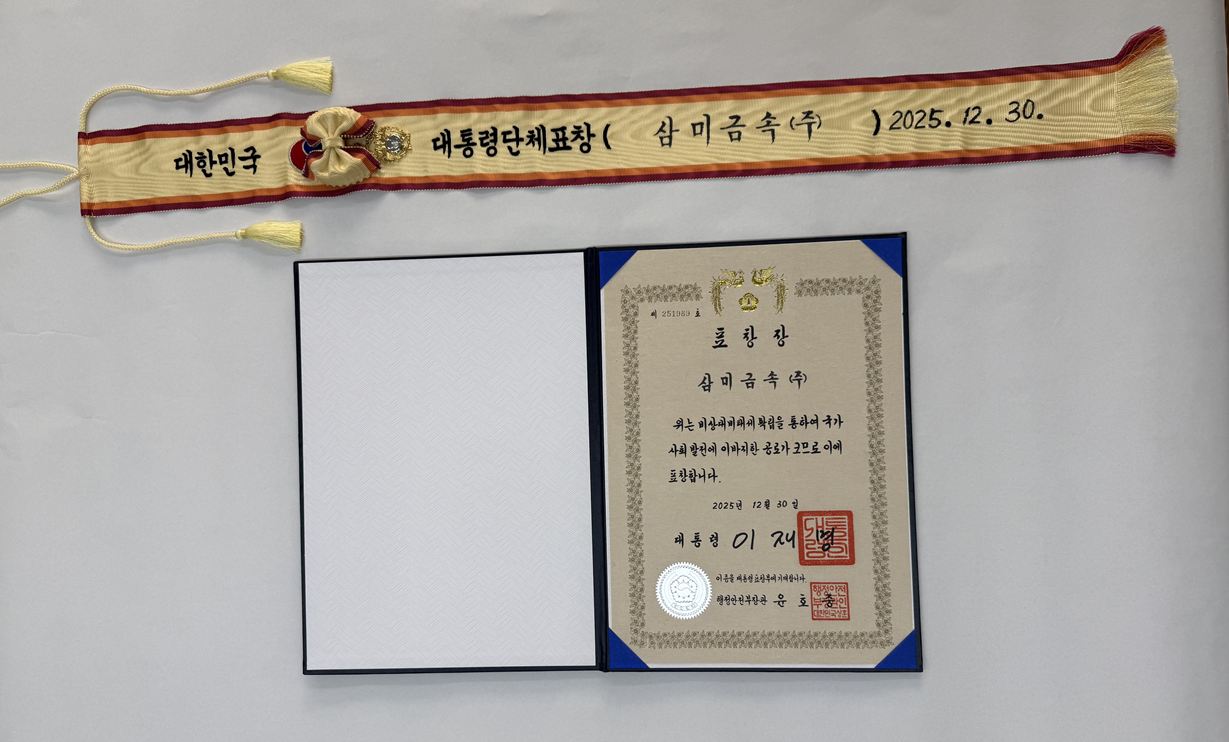 대한민국 대통령단체표창 ( 삼미금속 (주) ) 2025. 12. 30.
제 251989 호
표 창 장
삼 미 금 속 (주)
위는 비상대비태세 확립을 통하여 국가
사회 발전에 이바지한 공로가 크므로 이에
표창합니다.
2025년 12월 30일
대통령 이재명
대통령인
이 증을 대통령표창부에 기재합니다.
행정안전부장관 윤호중
행정안전부장관인